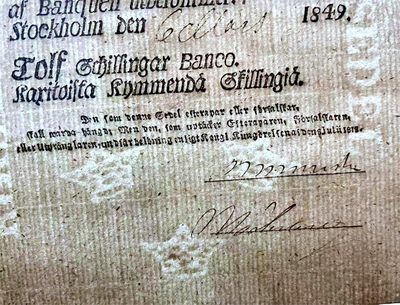 af Banquen utbekommer
Stockholm den 6 Mars 1849.
Tolf Schillingar Banco.
Karitoista Kymmendä Skillingiä.
Den som denne Sedel efterapar eller förfalskar,
skall warda hängd: Men den, som uptäcker Efteraparen, Förfalskaren,
eller Utprånglaren, undfår belöning enligt Kongl. Kungörelsen af den